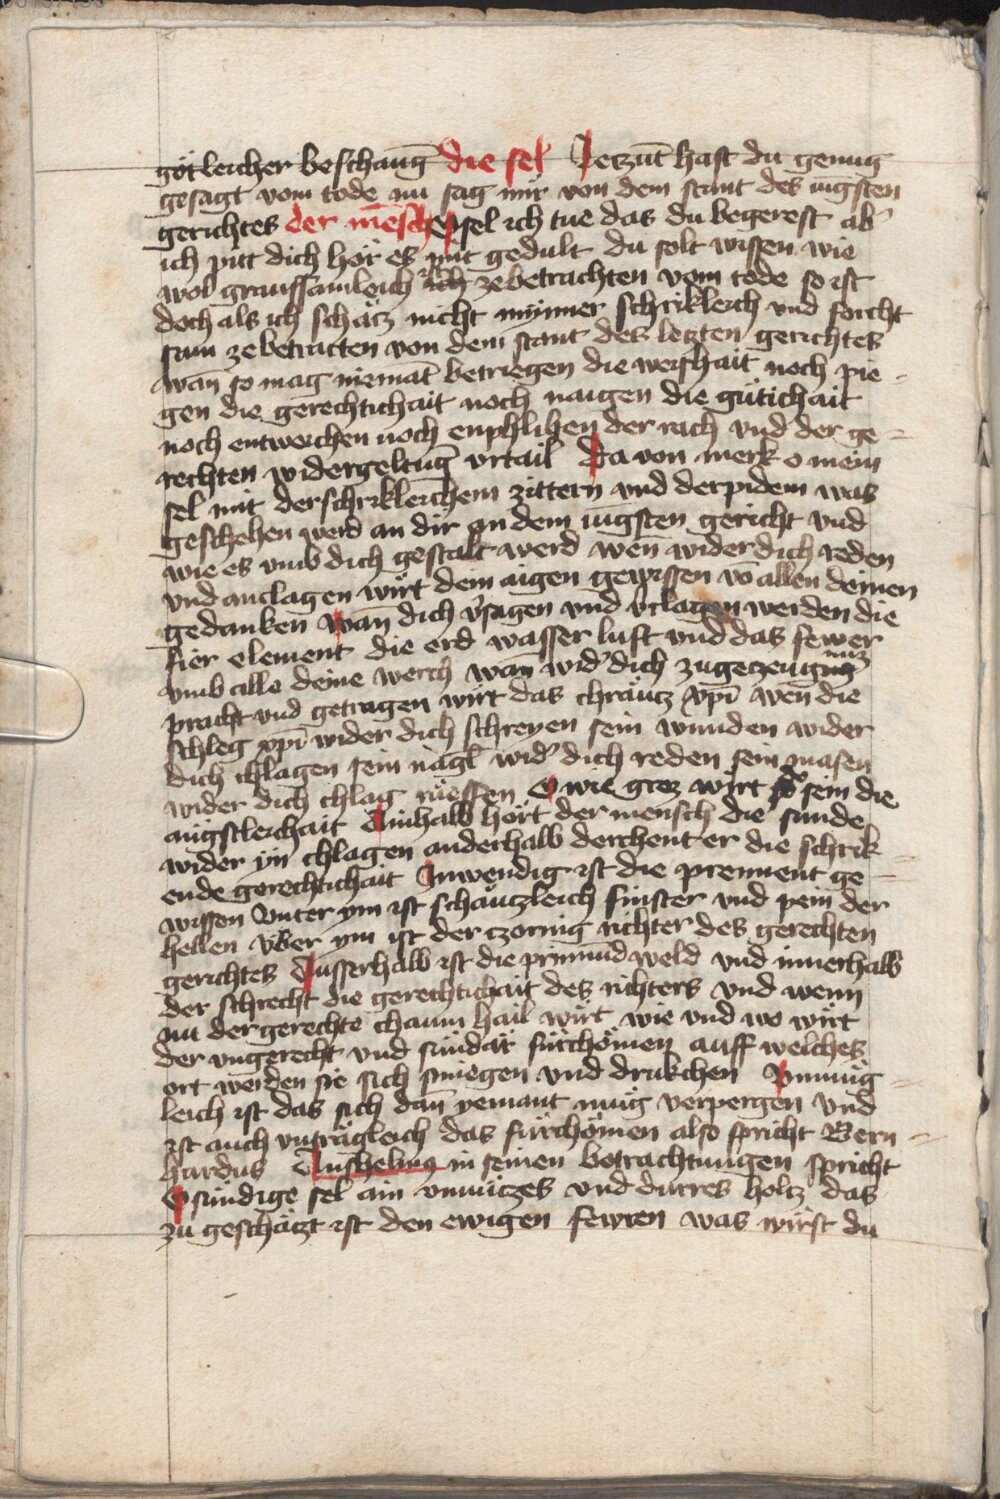 götleicher beschaūg die sel Jetzūt hast du genug
gesagt vom tode nu sag mir von dem stant des iūgsten
gerichtes der mēsch O sel ich tue das du begerest ab̄
ich pitt dich hör es mit gedult du solt wissen wie
wol graussamleich ist zebetrachten vom tode so ist
doch als ich schätz nicht mynner schrikleich vnd forcht
sam zebetratten von dem stant des letzten gerichtes
wān so mag niemāt betriegen die weishait noch pie-
gen die gerechtichait noch naigen die gütichait
noch entweichen noch enphlihen der rach vnd der ge-
rechten widergeltūg vrtail Da von merk o mein
sel mit derschrikleichem zittern vnd derpidem was
geschehen werd an dir an dem iūgsten gericht vnd
wie es vmb dich gestalt werd wen̄ wider dich reden
vnd anclagen wirt dem aigen gewissen vō allen deinen
gedanken wān dich v̄sagen vnd v̄clagen werden die
fier element die erd wasser luft vnd das fewer
vmb alle deine werch wan wid̄ dich zugeczeugnuz
pracht vnd getragen wirt das chräucz xp̄i wen̄ die
schleg xp̄i wider dich schreyen sein wunden wider
dich chlagen sein nägl wid̄ dich reden sein masen
wider dich chlag rüeffen O wie groz wirt sein die
angstleichait Ainhalb hört der mensch die sunde
wider yn chlagen anderhalb derchent er die schrik-
ende gerechtichait Inwendig ist die prennent ge-
wissen Vnter ym ist schäuczleich finster vnd pein der
hellen vber ym ist der czornig richter des gerechten
gerichtes Ausserhalb ist die prinnūd weld vnd innerhalb
der schrecht die gerechtichait des richters vnd wenn
nu der gerechte chaum hail wirt wie vnd wo wirt
der vngerecht vnd sündär fürchömen auff welches
ort werden sie sich smiegen vnd drukchen Vnmüg-
leich ist das sich dan̄ yemant müg verpergen vnd
ist auch vnträgleich das fürchömen also spricht Bern-
hardus Anshelmꝰ in seinen betrachtungen spricht
O sündige sel ain vnnüczes vnd dürres holtz das
zu geschätzt ist den ewigen fewren was wirst du